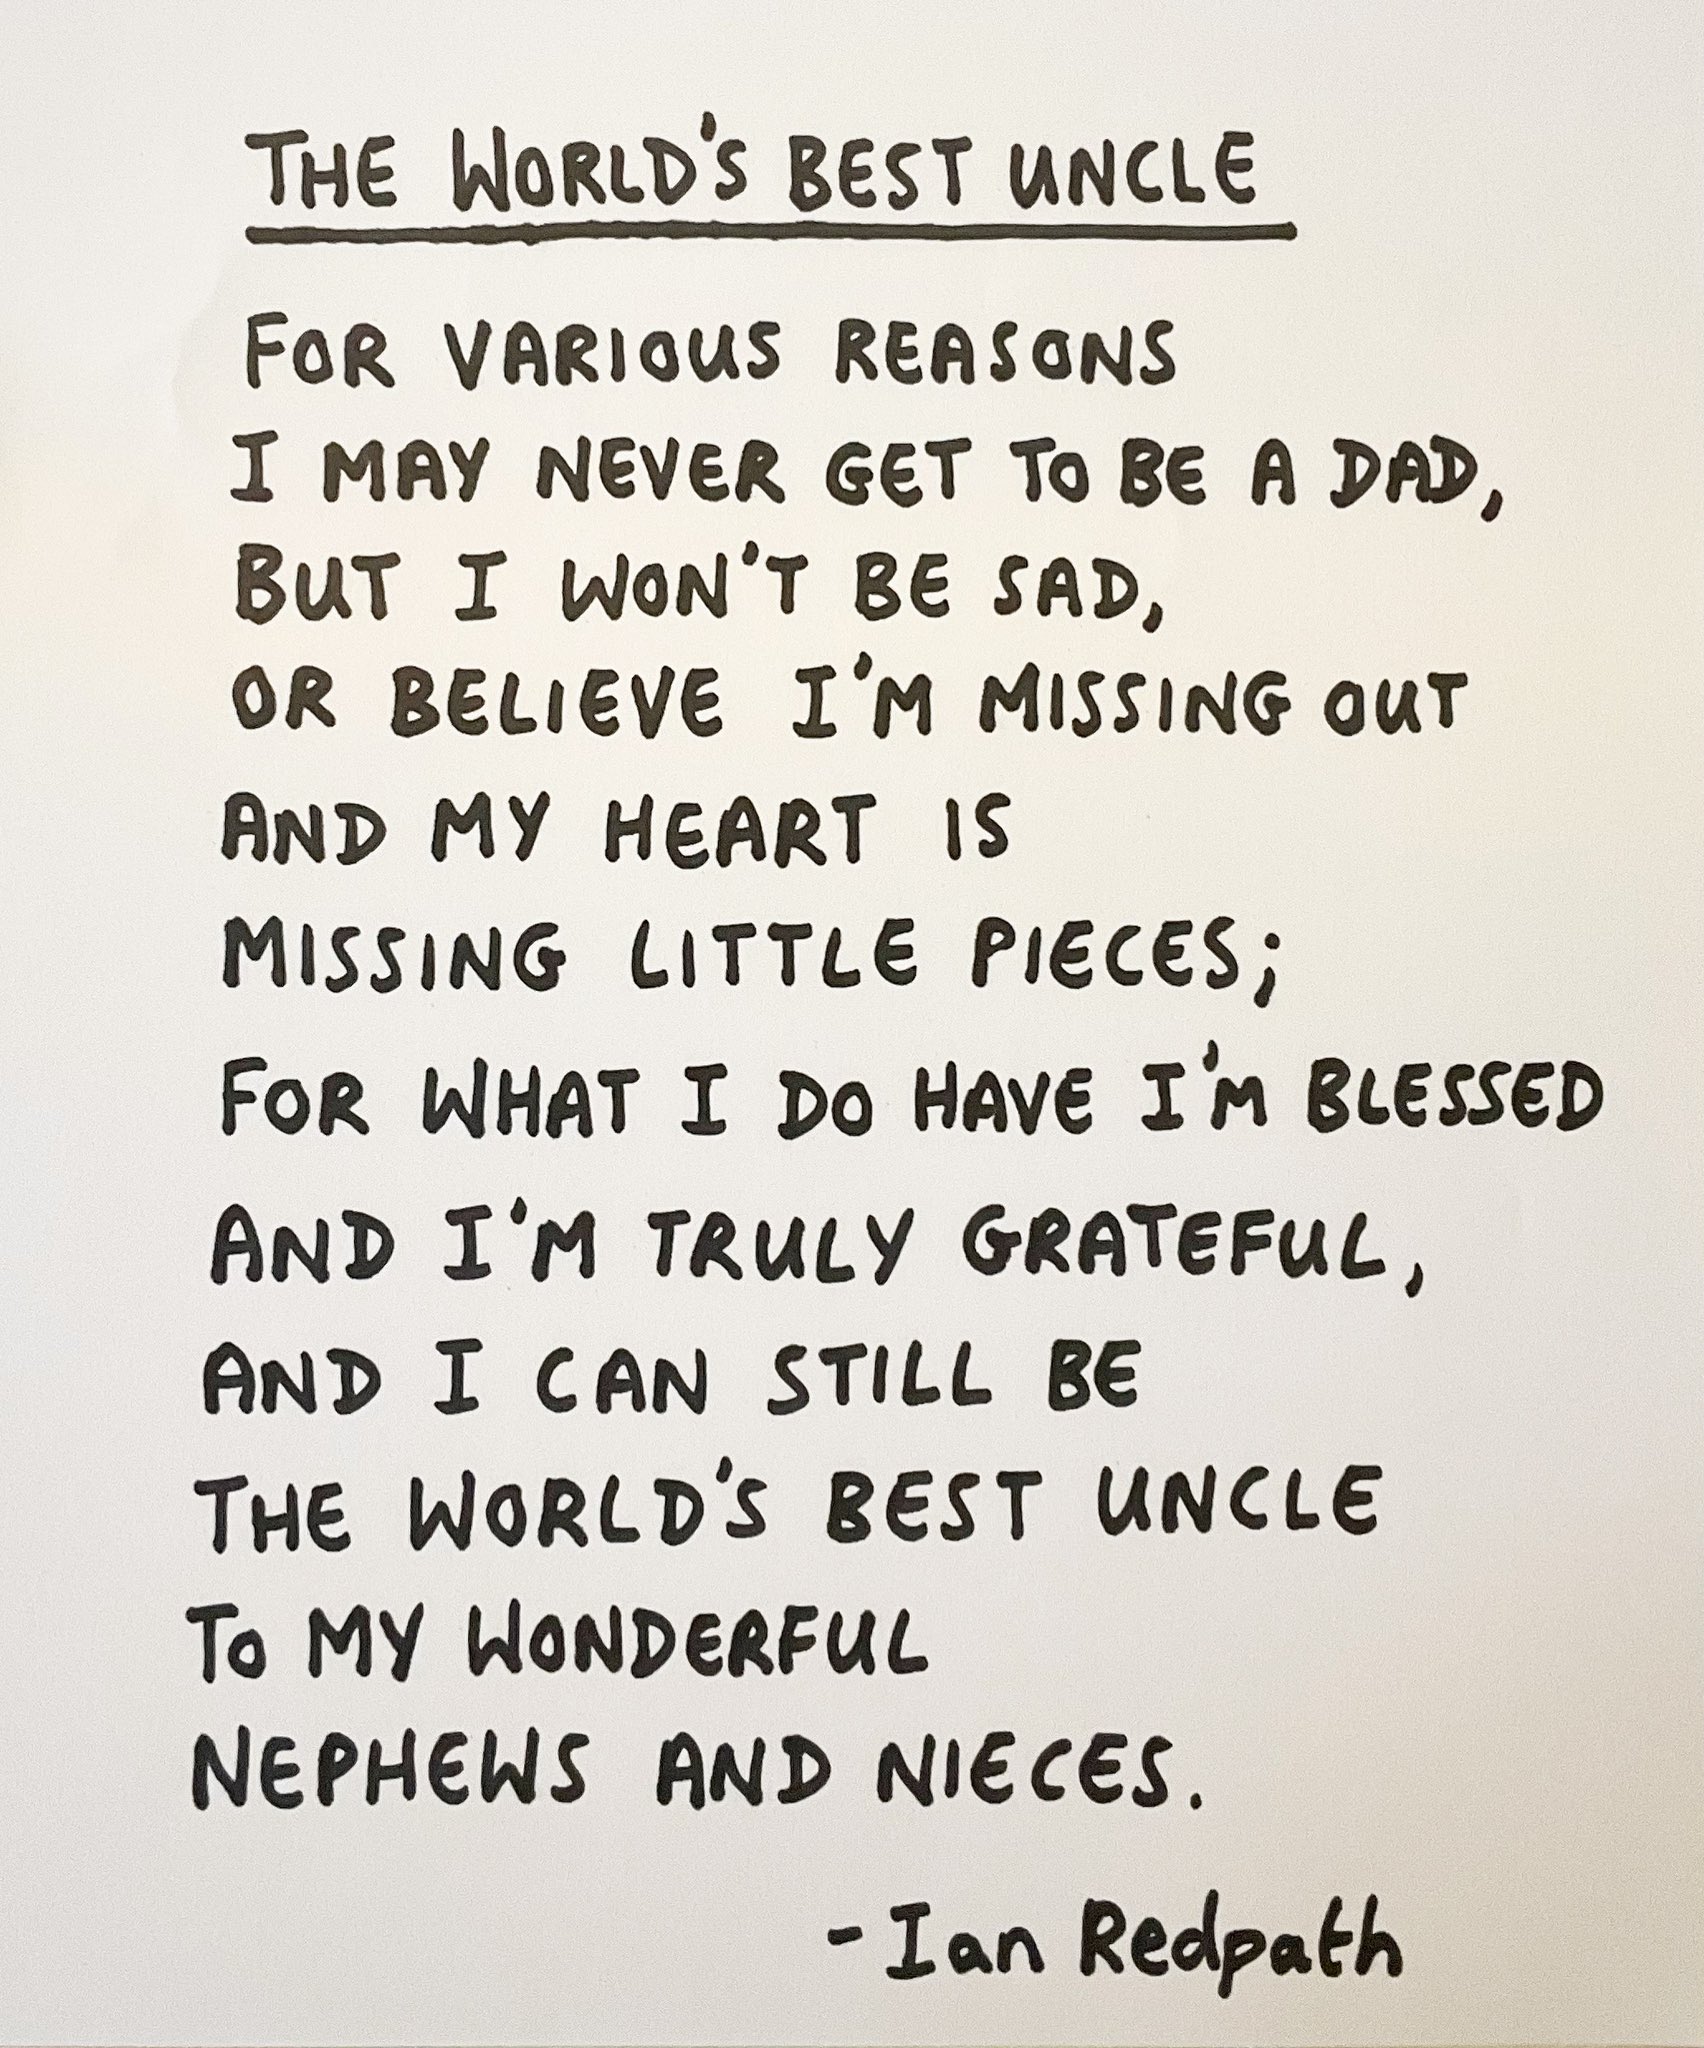 THE WORLD'S BEST UNCLE
FOR VARIOUS REASONS
I MAY NEVER GET TO BE A DAD,
BUT I WON'T BE SAD,
OR BELIEVE I'M MISSING OUT
AND MY HEART IS
MISSING LITTLE PIECES;
FOR WHAT I DO HAVE I'M BLESSED
AND I'M TRULY GRATEFUL,
AND I CAN STILL BE
THE WORLD'S BEST UNCLE
TO MY WONDERFUL
NEPHEWS AND NIECES.
- Ian Redpath